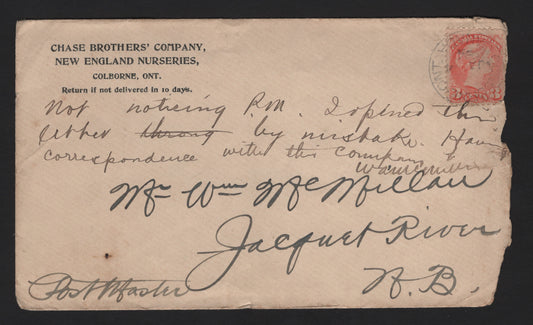 CHASE BROTHERS' COMPANY,
NEW ENGLAND NURSERIES,
COLBORNE, ONT.
Return if not delivered in 10 days.
Not noticing P.M. I opened this
letter by mistake. Have
correspondence with this Company
Mr Wm McMillan
Jacquet River
N.B.
Post Master